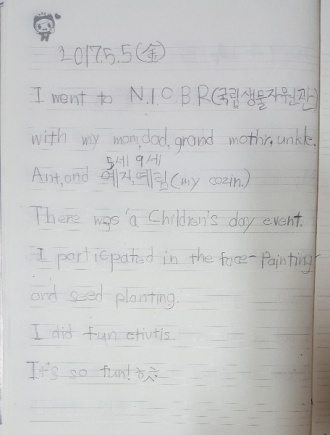 2017.5.5(金)
I went to N.I.O.B.R(국립생물자원관)
with my mom,dad,grand mothr,unkle.
5세 9세
Ant,and 예지,예림(my cozin.)
There was a Children's day event.
I participated in the face-Painting
and seed planting.
I did fun etivtis
It's so fun!